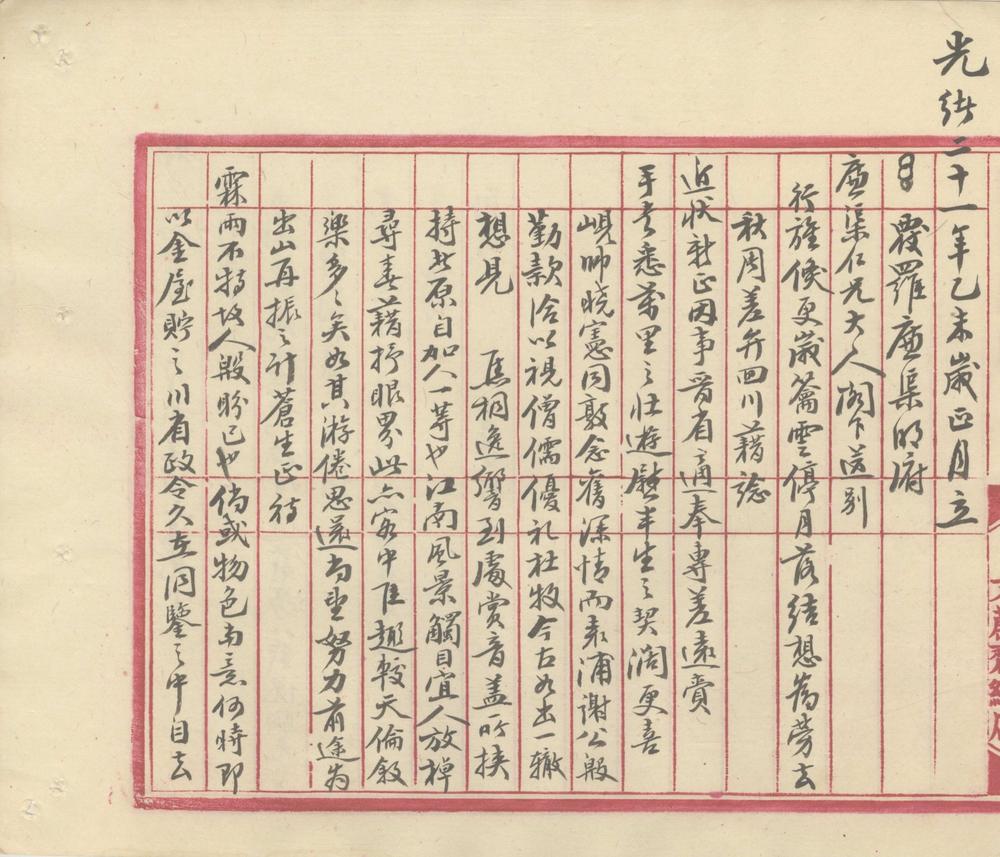 光緒二十一年乙未歲正月立
覆羅應渠明府
應渠仁兄大人閣下送別
行旌倏更歲籥雲停月落結想為勞去
秋周差弁回川藉諗
近狀新正因事晋省適奉專差遠賫
手書悉萬里之壯遊慰半生之契闊更喜
峴帥曉憲同敦念舊深情而袁浦謝公殷
勤款洽以視僧儒優礼杜牧今古如出一轍
想見 焦桐逸響到處賞音蓋所挾
持者原自加人一等也江南風景觸目宜人放棹
尋春藉抒眼界此亦客中佳趣較天倫敘
樂多多矣如其游倦思還尚望努力前途為
出山再振之計蒼生正待
霖雨不特故人殷盼已也倘或物色南音何時即
以金屋貯之川省政令久在洞鑒之中自去